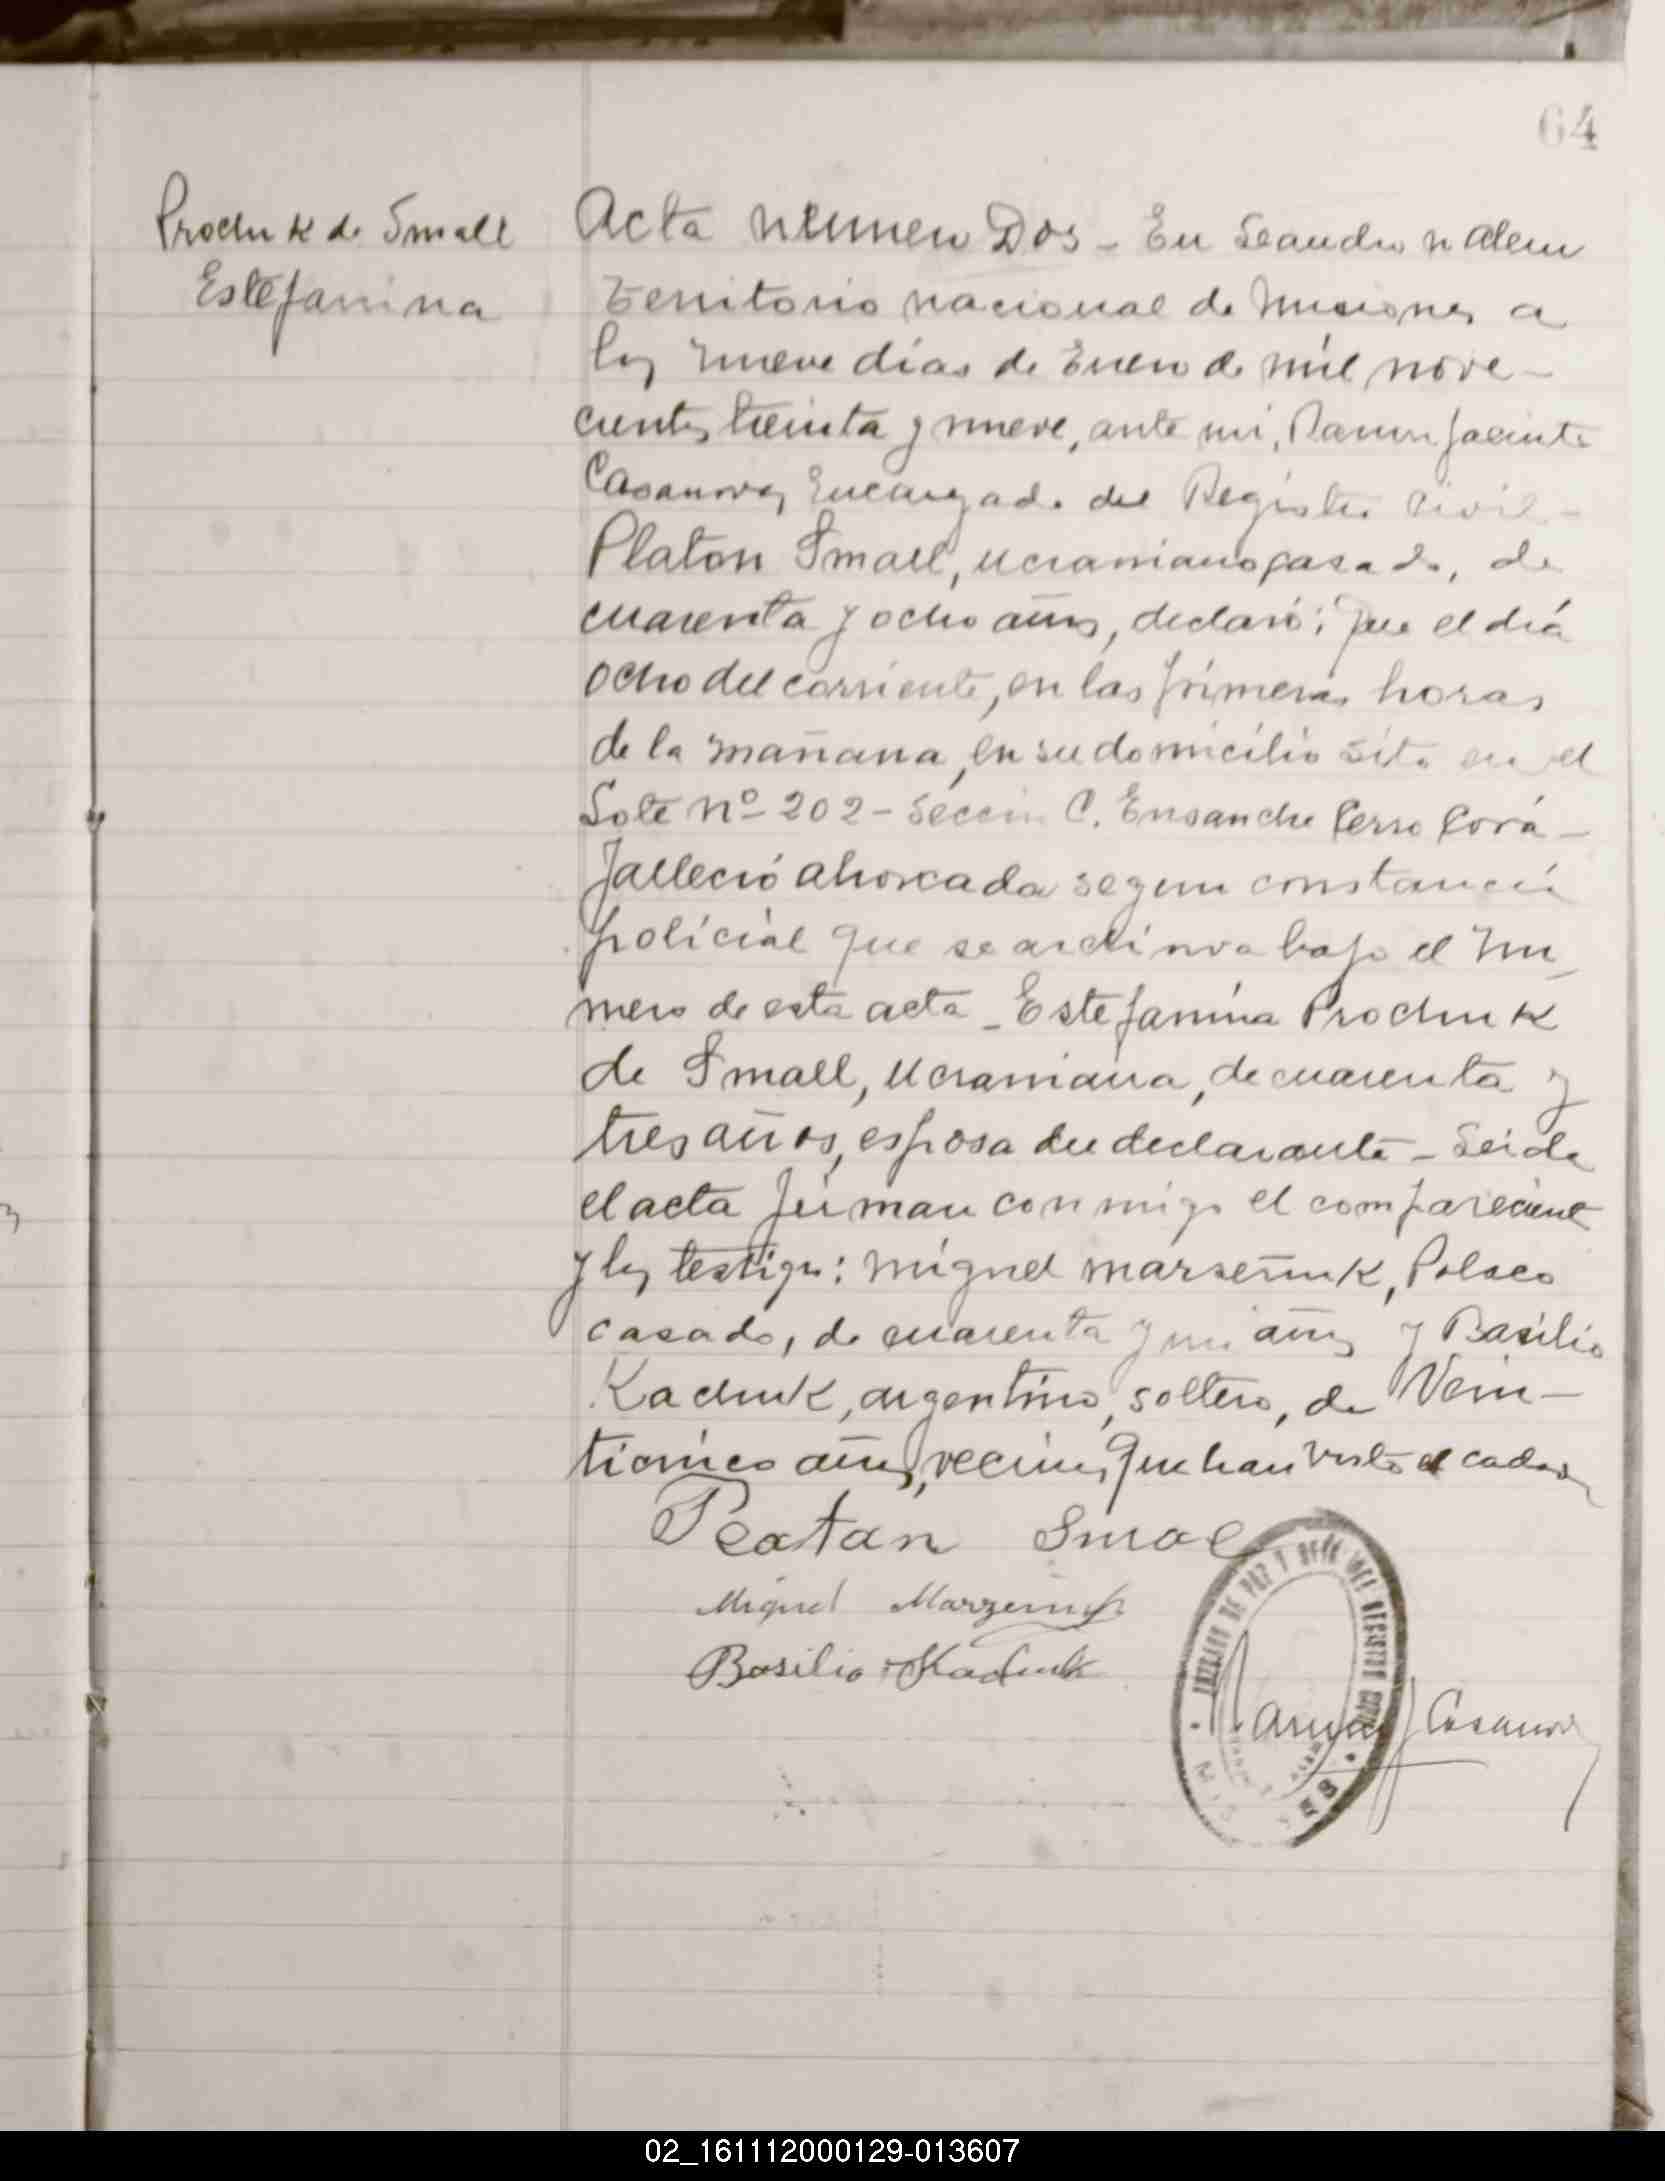 64
Prochuk de Small
Estefanina
Acta número Dos - En Leandro N Alem
Territorio nacional de Misiones a
los nueve días de Enero de mil nove-
cientos treinta y nueve, ante mi, Ramon Jacinto
Casanova, Encargado del Registro Civil-
Platon Small, ucraniano, casado, de
cuarenta y ocho años, declaró: Que el día
ocho del corriente, en las primeras horas
de la mañana, en su domicilio sito en el
Lote Nº 202 - Sección C. Ensanche Cerro Corá -
falleció ahorcada segun constancia
policial que se archiva bajo el nu
mero de esta acta - Estefanina Prochuk
de Small, ucraniana, de cuarenta y
tres años, esposa del declarante - Leida
el acta firman conmigo el compareciente
y los testigos: Miguel Marseñuk, Polaco
casado, de cuarenta y un años y Basilio
Kachuk, argentino, soltero, de Vein-
ticinco años, vecinos, que han visto el cadaver
Platan Smal
Miguel Marzeniuk
Basilio Kachuk
JUZGADO DE PAZ Y DEL REGISTRO CIVIL
Ramon J Casanova
02_161112000129-013607